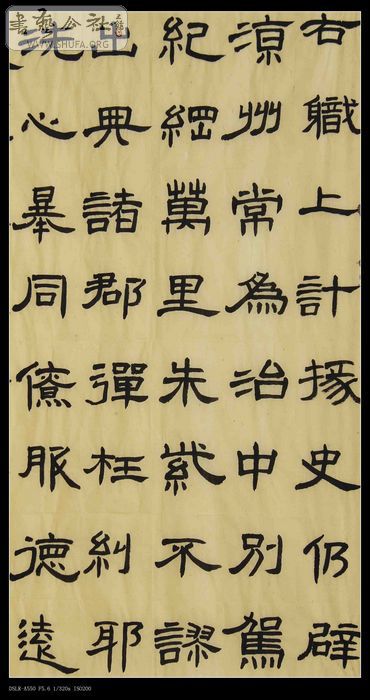 右職上計掾史仍辟
涼州常為治中別駕
紀綱萬里朱紫不謬
出典諸郡彈枉糾耶
洗心舉同僚服德遠
書艺公社
WWW.SHUFA.ORG
DSLR-A550 F5.6 1/320s ISO200